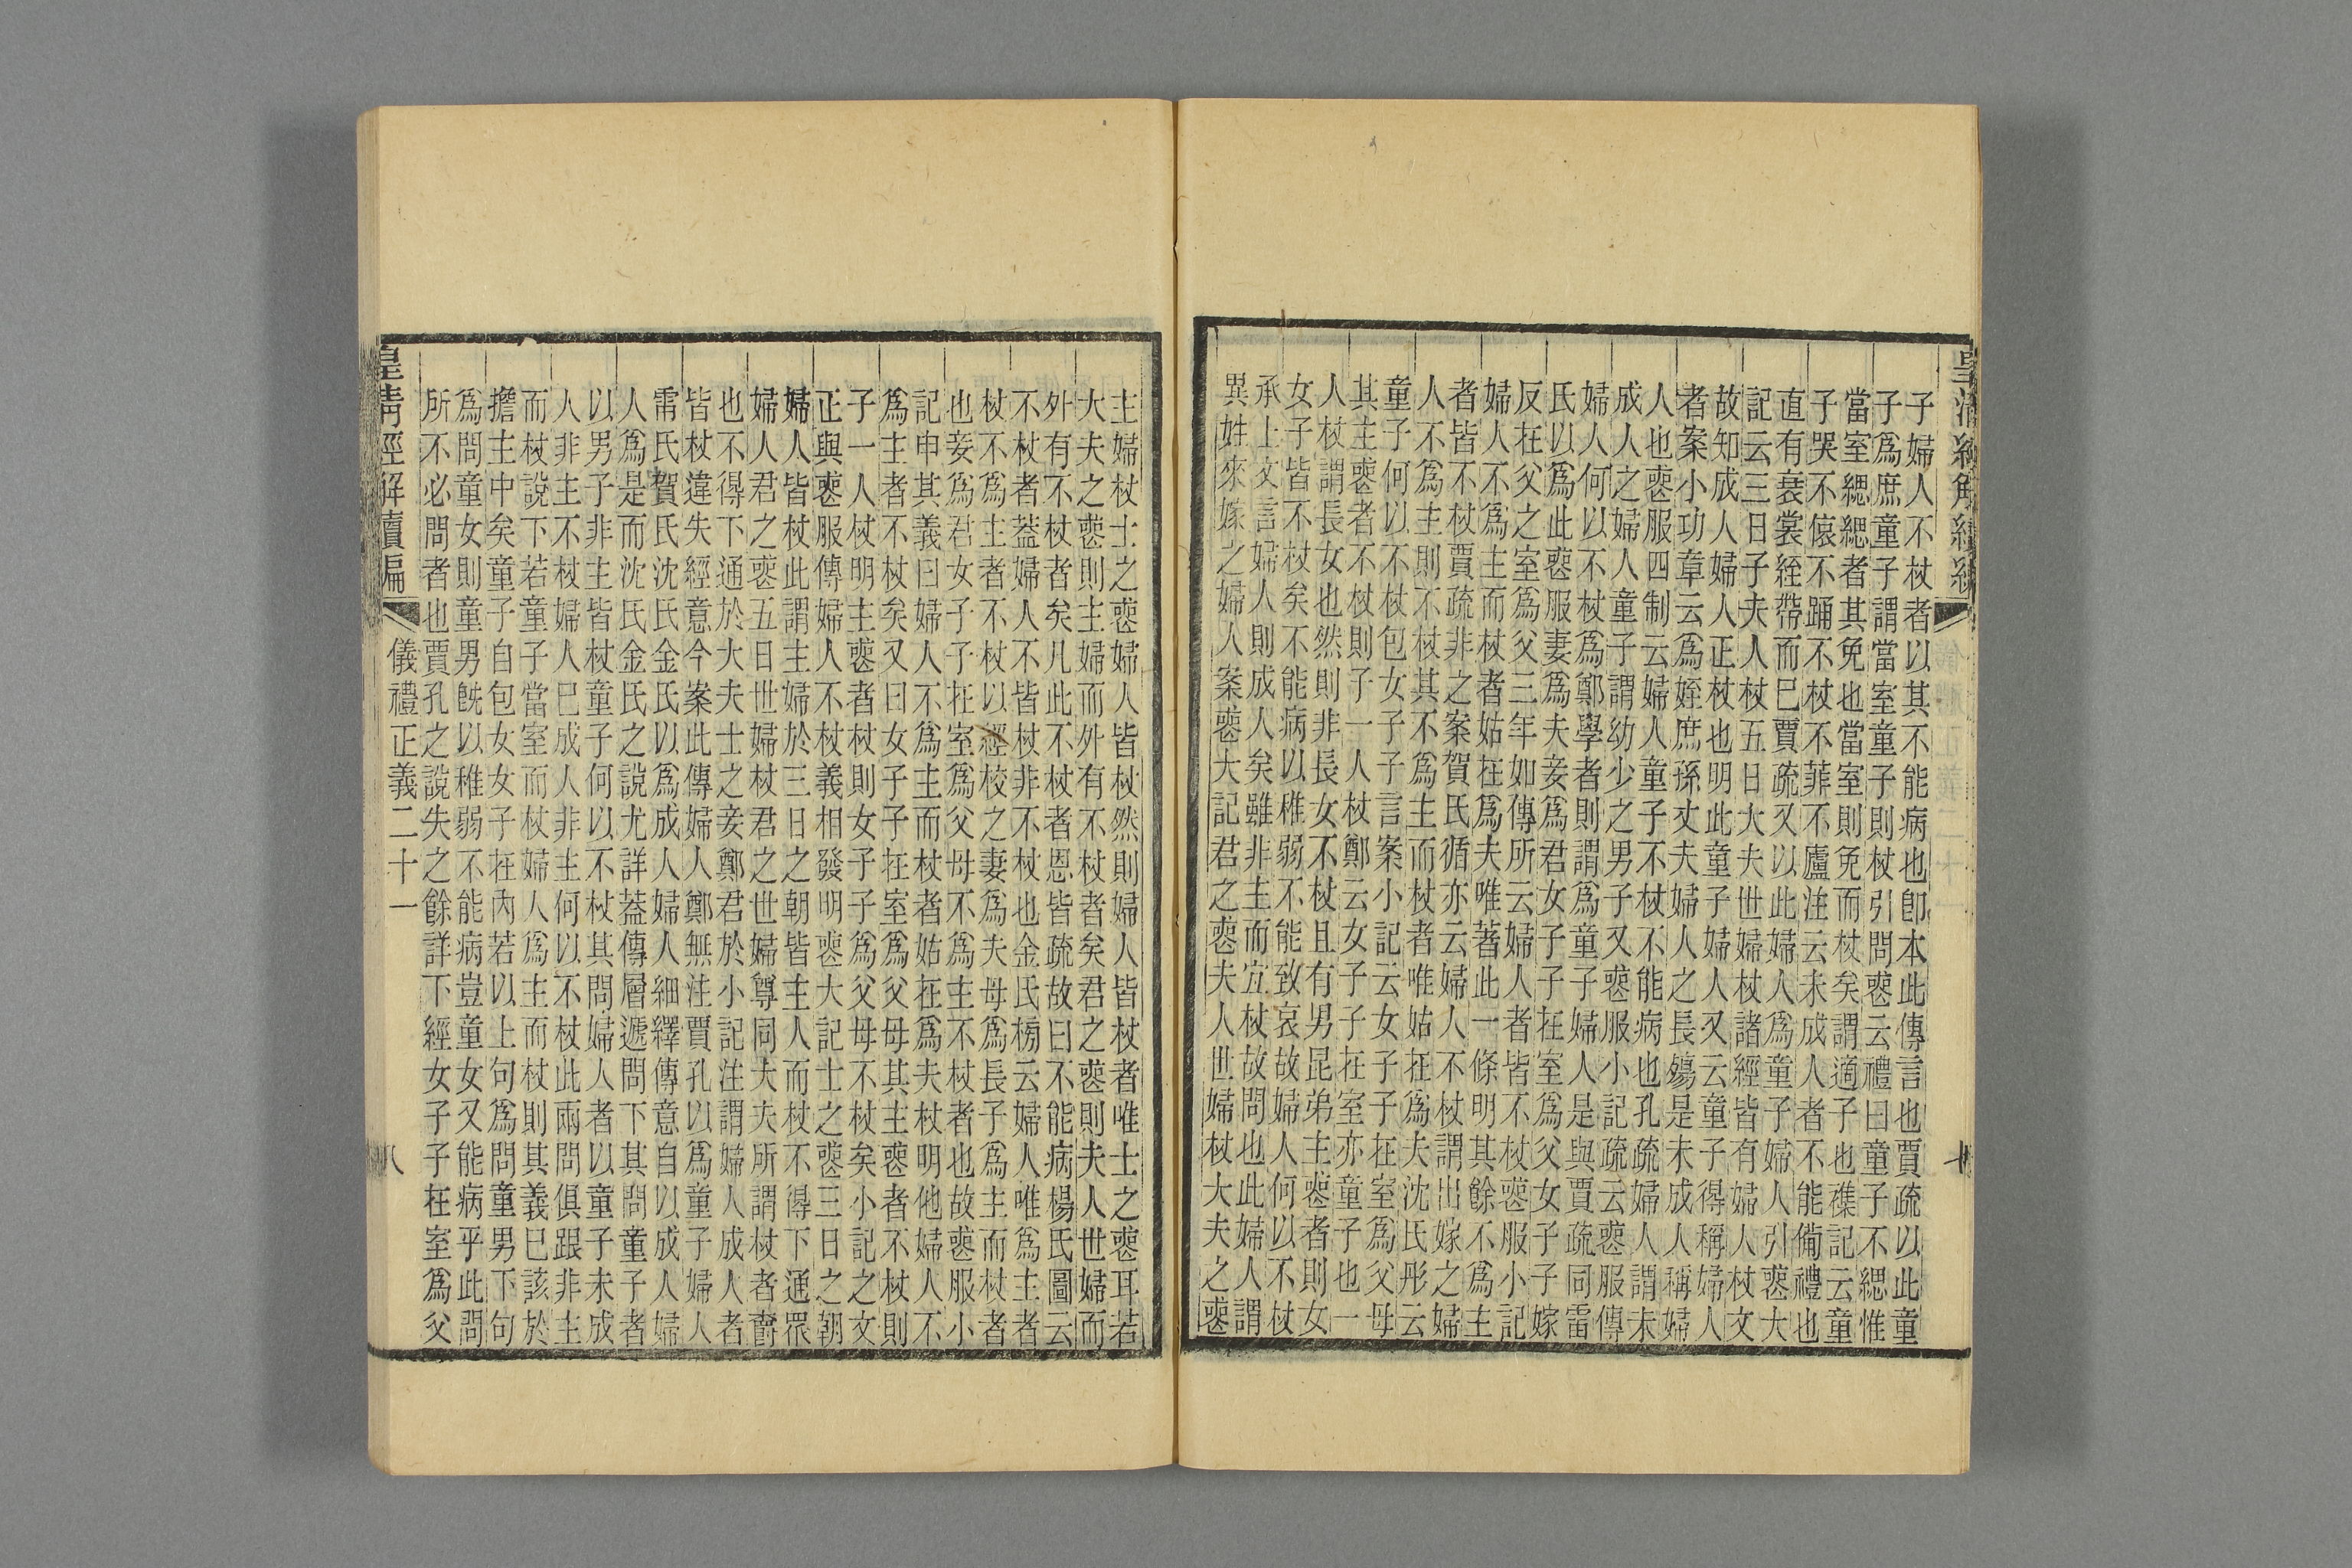 皇清經解續編
子婦人不杖者以其不能病也卽本此傳言也賈疏以此童
子爲庶童子謂當室童子則杖引問喪云禮曰童子不緦惟
當室緦緦者其免也當室則免而杖矣謂適子也襍記云童
子哭不偯不踊不杖不菲不廬注云未成人者不能備禮也
直有衰裳絰帶而巳賈疏又以此婦人爲童子婦人引喪大
記云三日子夫人杖五日大夫世婦杖諸經皆有婦人杖文
故知成人婦人正杖也明此童子婦人又云童子得稱婦人
者案小功章云爲姪庶孫丈夫婦人之長殤是未成人稱婦
人也喪服四制云婦人童子不杖不能病也孔疏婦人謂未
成人之婦人童子謂幼少之男子又喪服小記疏云喪服傳
婦人何以不杖爲鄭學者則謂爲童子婦人是與賈疏同雷
氏以爲此喪服妻爲夫妾爲君女子子在室爲父女子子嫁
反在父之室爲父三年如傳所云婦人者皆不杖喪服小記
婦人不爲主而杖者姑在爲夫唯著此一條明其餘不爲主
者皆不杖賈疏非之案賀氏循亦云婦人不杖謂出嫁之婦
人不爲主則不杖其不爲主而杖者唯姑在爲夫沈氏彤云
童子何以不杖包女子子言案小記云女子子在室爲父母
其主喪者不杖則子一人杖鄭云女子子在室亦童子也一
人杖謂長女也然則非長女不杖且有男昆弟主喪者則女
女子皆不杖矣不能病以稚弱不能致哀故婦人何以不杖
承上文言婦人則成人矣雖非主而宜杖故問也此婦人謂
異姓來嫁之婦人案喪大記君之喪夫人世婦杖大夫之喪
主婦杖士之喪婦人皆杖然則婦人皆杖者唯士之喪耳若
大夫之喪則主婦而外有不杖者矣君之喪則夫人世婦而
外有不杖者矣凡此不杖者恩皆疏故曰不能病楊氏圖云
不杖者葢婦人不皆杖非不杖也金氏榜云婦人唯爲主者
杖不爲主者不杖以經校之妻爲夫母爲長子爲主而杖者
也妾爲君女子子在室爲父母不爲主不杖者也故喪服小
記申其義曰婦人不爲主而杖者姑在爲夫杖明他婦人不
爲主者不杖矣又曰女子子在室爲父母其主喪者不杖則
子一人杖明主喪者杖則女子子爲父母不杖矣小記之文
正與喪服傳婦人不杖義相發明喪大記士之喪三日之朝
婦人皆杖此謂主婦於三日之朝皆主人而杖不得下通眾
婦人君之喪五日世婦杖君之世婦尊同大夫所謂杖者爵
也不得下通於大夫士之妾鄭君於小記注謂婦人成人者
皆杖違失經意今案此傳婦人鄭無注賈孔以爲童子婦人
雷氏賀氏沈氏金氏以爲成人婦人細繹傳意自以成人婦
人爲是而沈氏金氏之說尤詳葢傳層遞問下其問童子者
以男子非主皆杖童子何以不杖其問婦人者以童子未成
人非主不杖婦人巳成人非主何以不杖此兩問俱跟非主
而杖說下若童子當室而杖婦人爲主而杖則其義巳該於
擔主中矣童子自包女女子在內若以上句爲問童男下句
爲問童女則童男旣以稚弱不能病豈童女又能病乎此問
所不必問者也賈孔之說失之餘詳下經女子子在室爲父
皇清經解續編
儀禮正義二十一
八